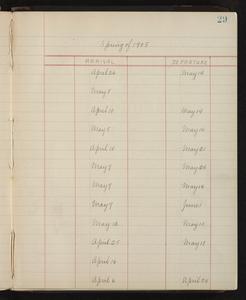 29
Spring of 1905
ARRIVAL DEPARTURE
April 26 May 16
May 8
April 10 May 14
May 5 May 10
April 10 May 21
May 9 May 24
May 9 May 16
May 9 June 1
May 12 May 15
April 25 May 18
April 16
April 6 April 24